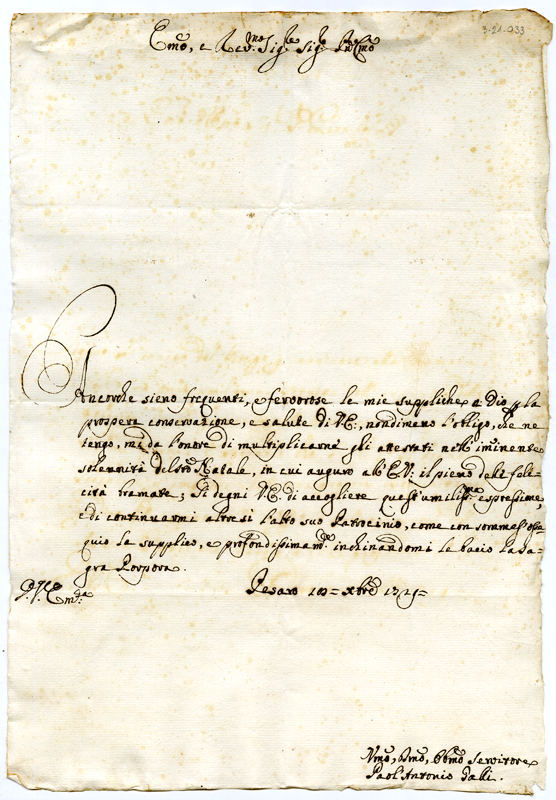 3-21-033
Emo, e Revmo Sigre Sigre
Ancorche sieno frequenti, e fervorose le mie suppliche a Dio p la
prospera conservazione, e salute di V.E., nondimeno l'obligo, che ne
tengo, mi da l'onore di multiplicarne gli attestati nell'imminente
solennità del Sto Natale, in cui auguro all'E.V. il pieno delle feli-
cità bramate; Si degni V.E. di accogliere quest'umilissma espressione,
e di continuarmi altresi l'alto suo Patrocinio, come con sommo osse-
quio la supplico, e profondissimamte inchinandomi le bacio la Sa-
gra Porpora.
Pesaro xbre
D. V. Emza
Vmo, Dmo, Obmo Servitore
Paol'Antonio